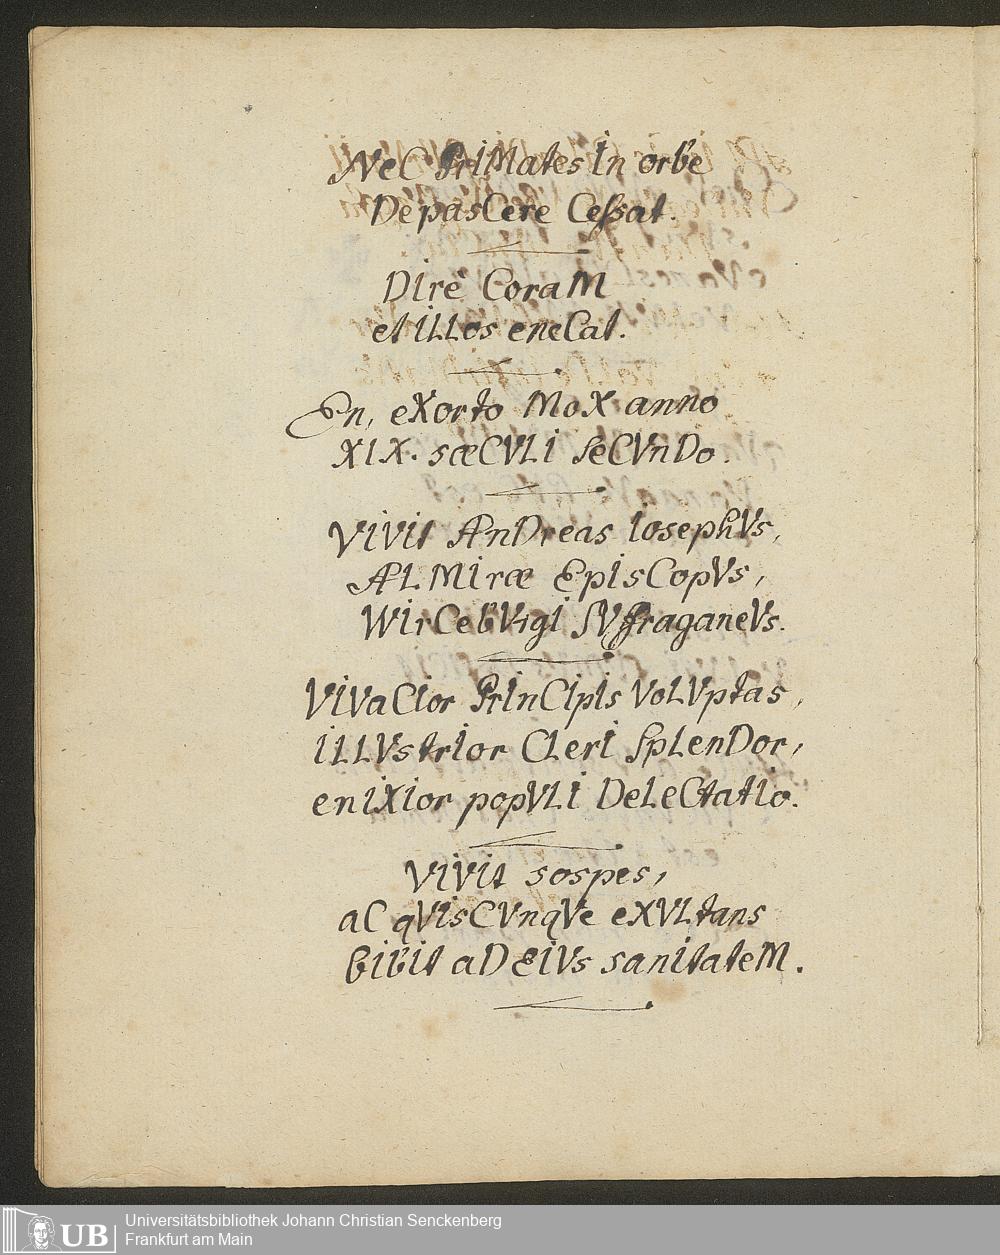 NeC PriMates In orbe
DepasCere Ceſsat.
DIrè CoraM
et ILLos eneCat.
En, eXorto MoX anno
XIX. sæCVLI SeCVnDo.
VIVIt AnDreas IosephVs,
ALMIræ EpIsCopVs,
WIrCebVrgI SVffraganeVs.
VIVaCIor PrInCIpIs VoLVptas,
ILLVstrIor CLerI SpLenDor,
enIXIor popVLI DeLeCtatIo.
VIVIt sospes,
aC qVIsCVnqVe eXVLtans
bIbIt aD EIVs sanItateM.
Universitätsbibliothek Johann Christian Senckenberg
UB Frankfurt am Main